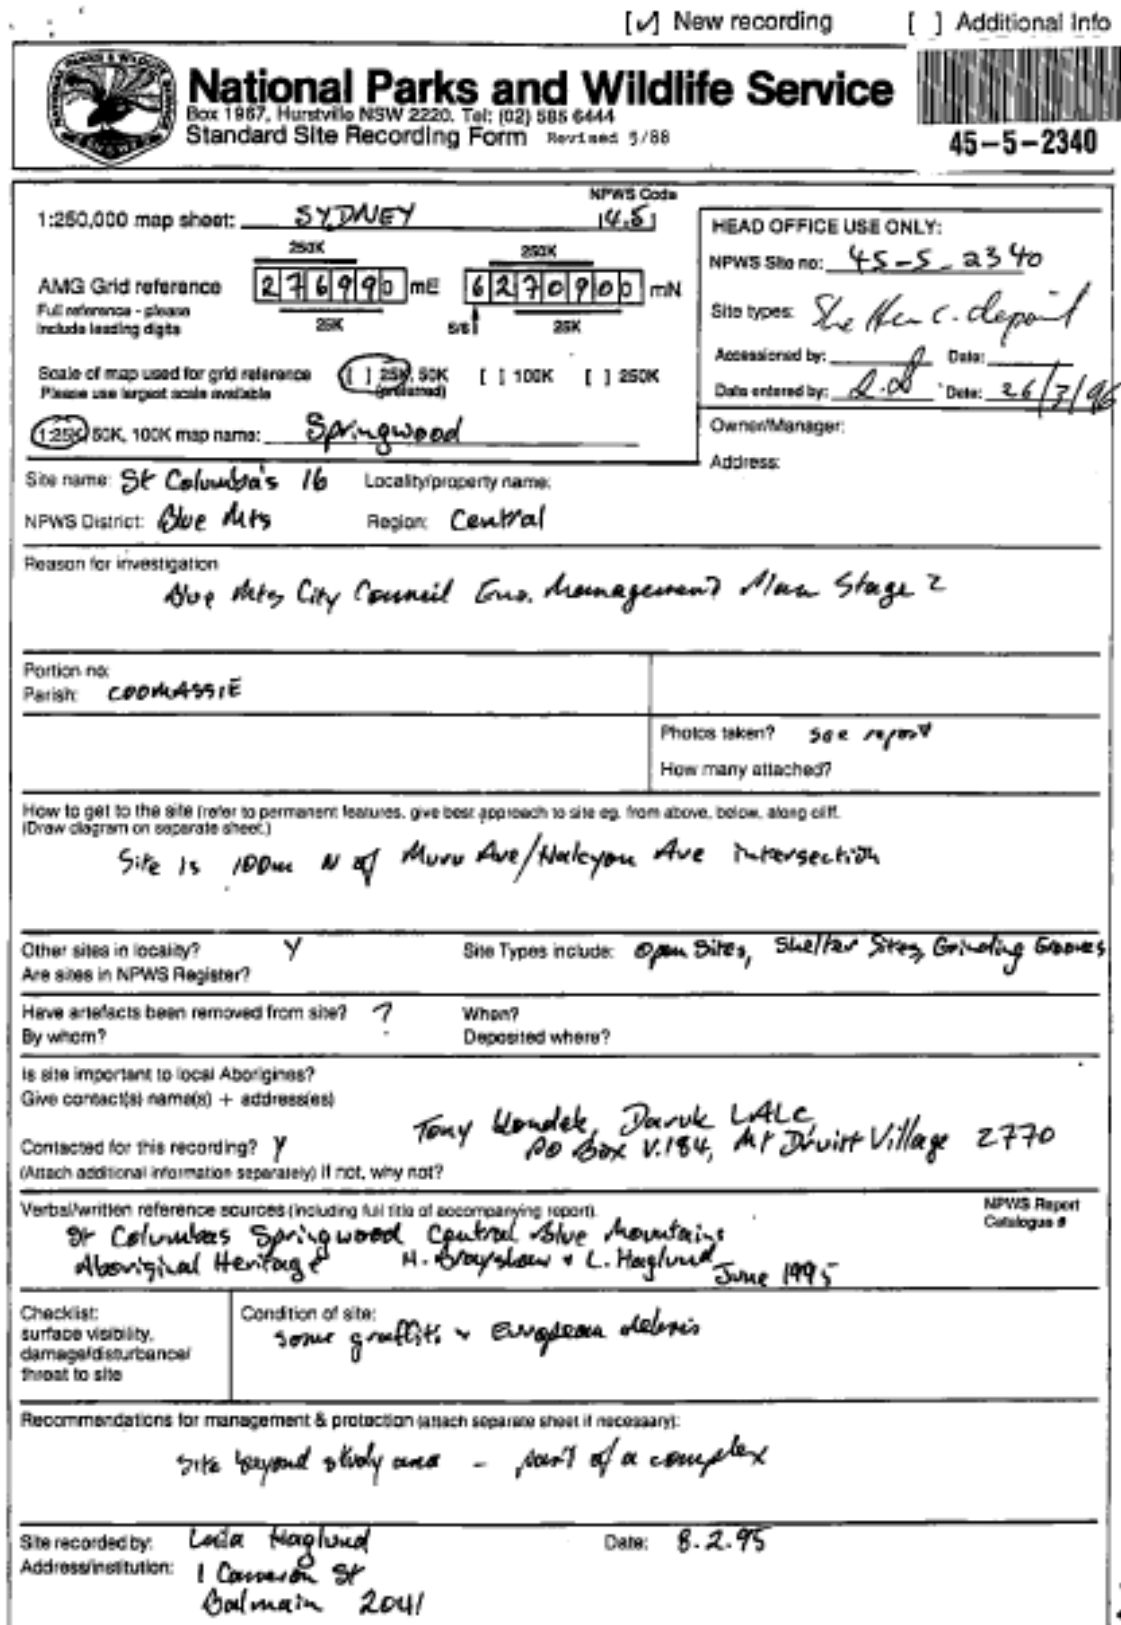 [✓] New recording [ ] Additional Info
National Parks and Wildlife Service
Box 1967, Hurstville NSW 2220. Tel: (02) 585 6444
Standard Site Recording Form Revised 5/88
45-5-2340
NPWS Code
1:250,000 map sheet: SYDNEY 14.5
250K 250K
AMG Grid reference 276990 mE 6270900 mN
Full reference - please
include leading digits
25K 5/6 25K
Scale of map used for grid reference [ ] 25K, 50K [ ] 100K [ ] 250K
Please use largest scale available (preferred)
1:25K, 50K, 100K map name: Springwood
HEAD OFFICE USE ONLY:
NPWS Site no: 45-5-2340
Site types: Shelter c. deposit
Accessioned by: Date:
Data entered by: Date: 26/3/96
Owner/Manager:
Address:
Site name: St Columba's 16 Locality/property name:
NPWS District: Blue Mts Region: Central
Reason for investigation
Blue Mts City Council Env. Management Plan Stage 2
Portion no:
Parish: COOMASSIE
Photos taken? see report
How many attached?
How to get to the site (refer to permanent features, give best approach to site eg. from above, below, along cliff.
(Draw diagram on separate sheet.)
Site is 100m N of Muru Ave/Halcyon Ave intersection
Other sites in locality? Y Site Types include: Open Sites, Shelter Sites, Grinding Grooves
Are sites in NPWS Register?
Have artefacts been removed from site? ? When?
By whom? Deposited where?
Is site important to local Aborigines?
Give contact(s) name(s) + address(es)
Tony Kondek, Daruk LALC
Contacted for this recording? Y PO Box V.184, Mt Druitt Village 2770
(Attach additional information separately) If not, why not?
Verbal/written reference sources (including full title of accompanying report). NPWS Report
Catalogue #
St Columbas Springwood Central Blue Mountains
Aboriginal Heritage H. Brayshaw & L. Haglund June 1995
Checklist:
surface visibility,
damage/disturbance/
threat to site
Condition of site:
some graffiti & European debris
Recommendations for management & protection (attach separate sheet if necessary):
Site beyond study area - part of a complex
Site recorded by: Laila Haglund Date: 8.2.95
Address/institution: 1 Cameron St
Balmain 2041